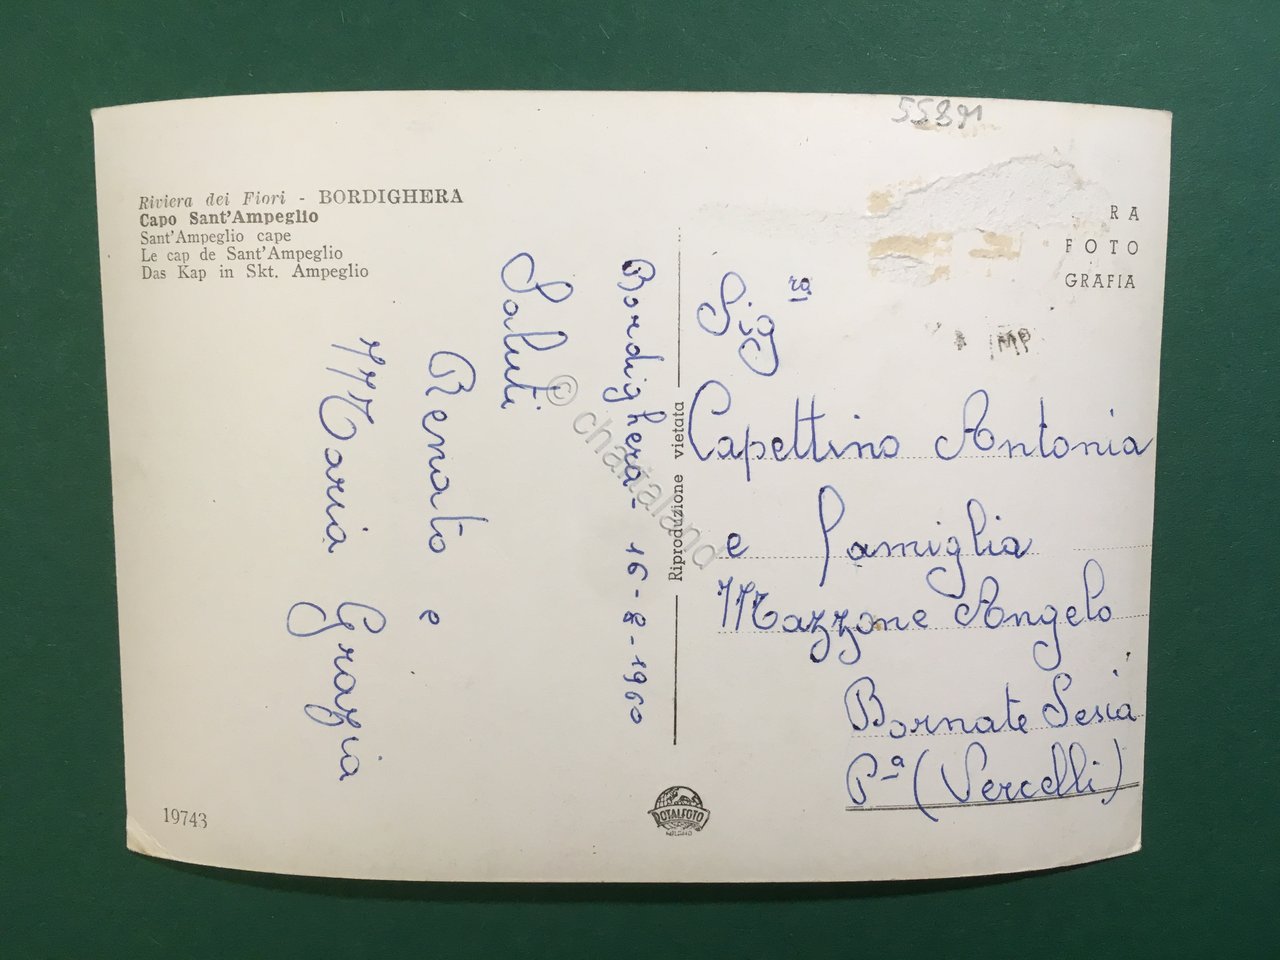 55891
Riviera dei Fiori - BORDIGHERA
Capo Sant'Ampeglio
Sant'Ampeglio cape
Le cap de Sant'Ampeglio
Das Kap in Skt. Ampeglio
RA
FOTO
GRAFIA
Bordighera - 16-8-1960
Saluti
Renato e
Maria Grazia
Riproduzione vietata
Sig.ra
Capettino Antonia
e famiglia
Mazzone Angelo
Bornate Sesia
Pa (Vercelli)
19743
ROTALFOTO
MILANO
© chartaland